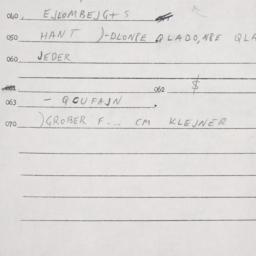 040. EJLOMBEJGTS
050 HANT )-DLONPE QLADO,NPE QLA
060 JEDER
062 $
063 - QOUFAJN .
070 )GROBER F... CM KLEJNER